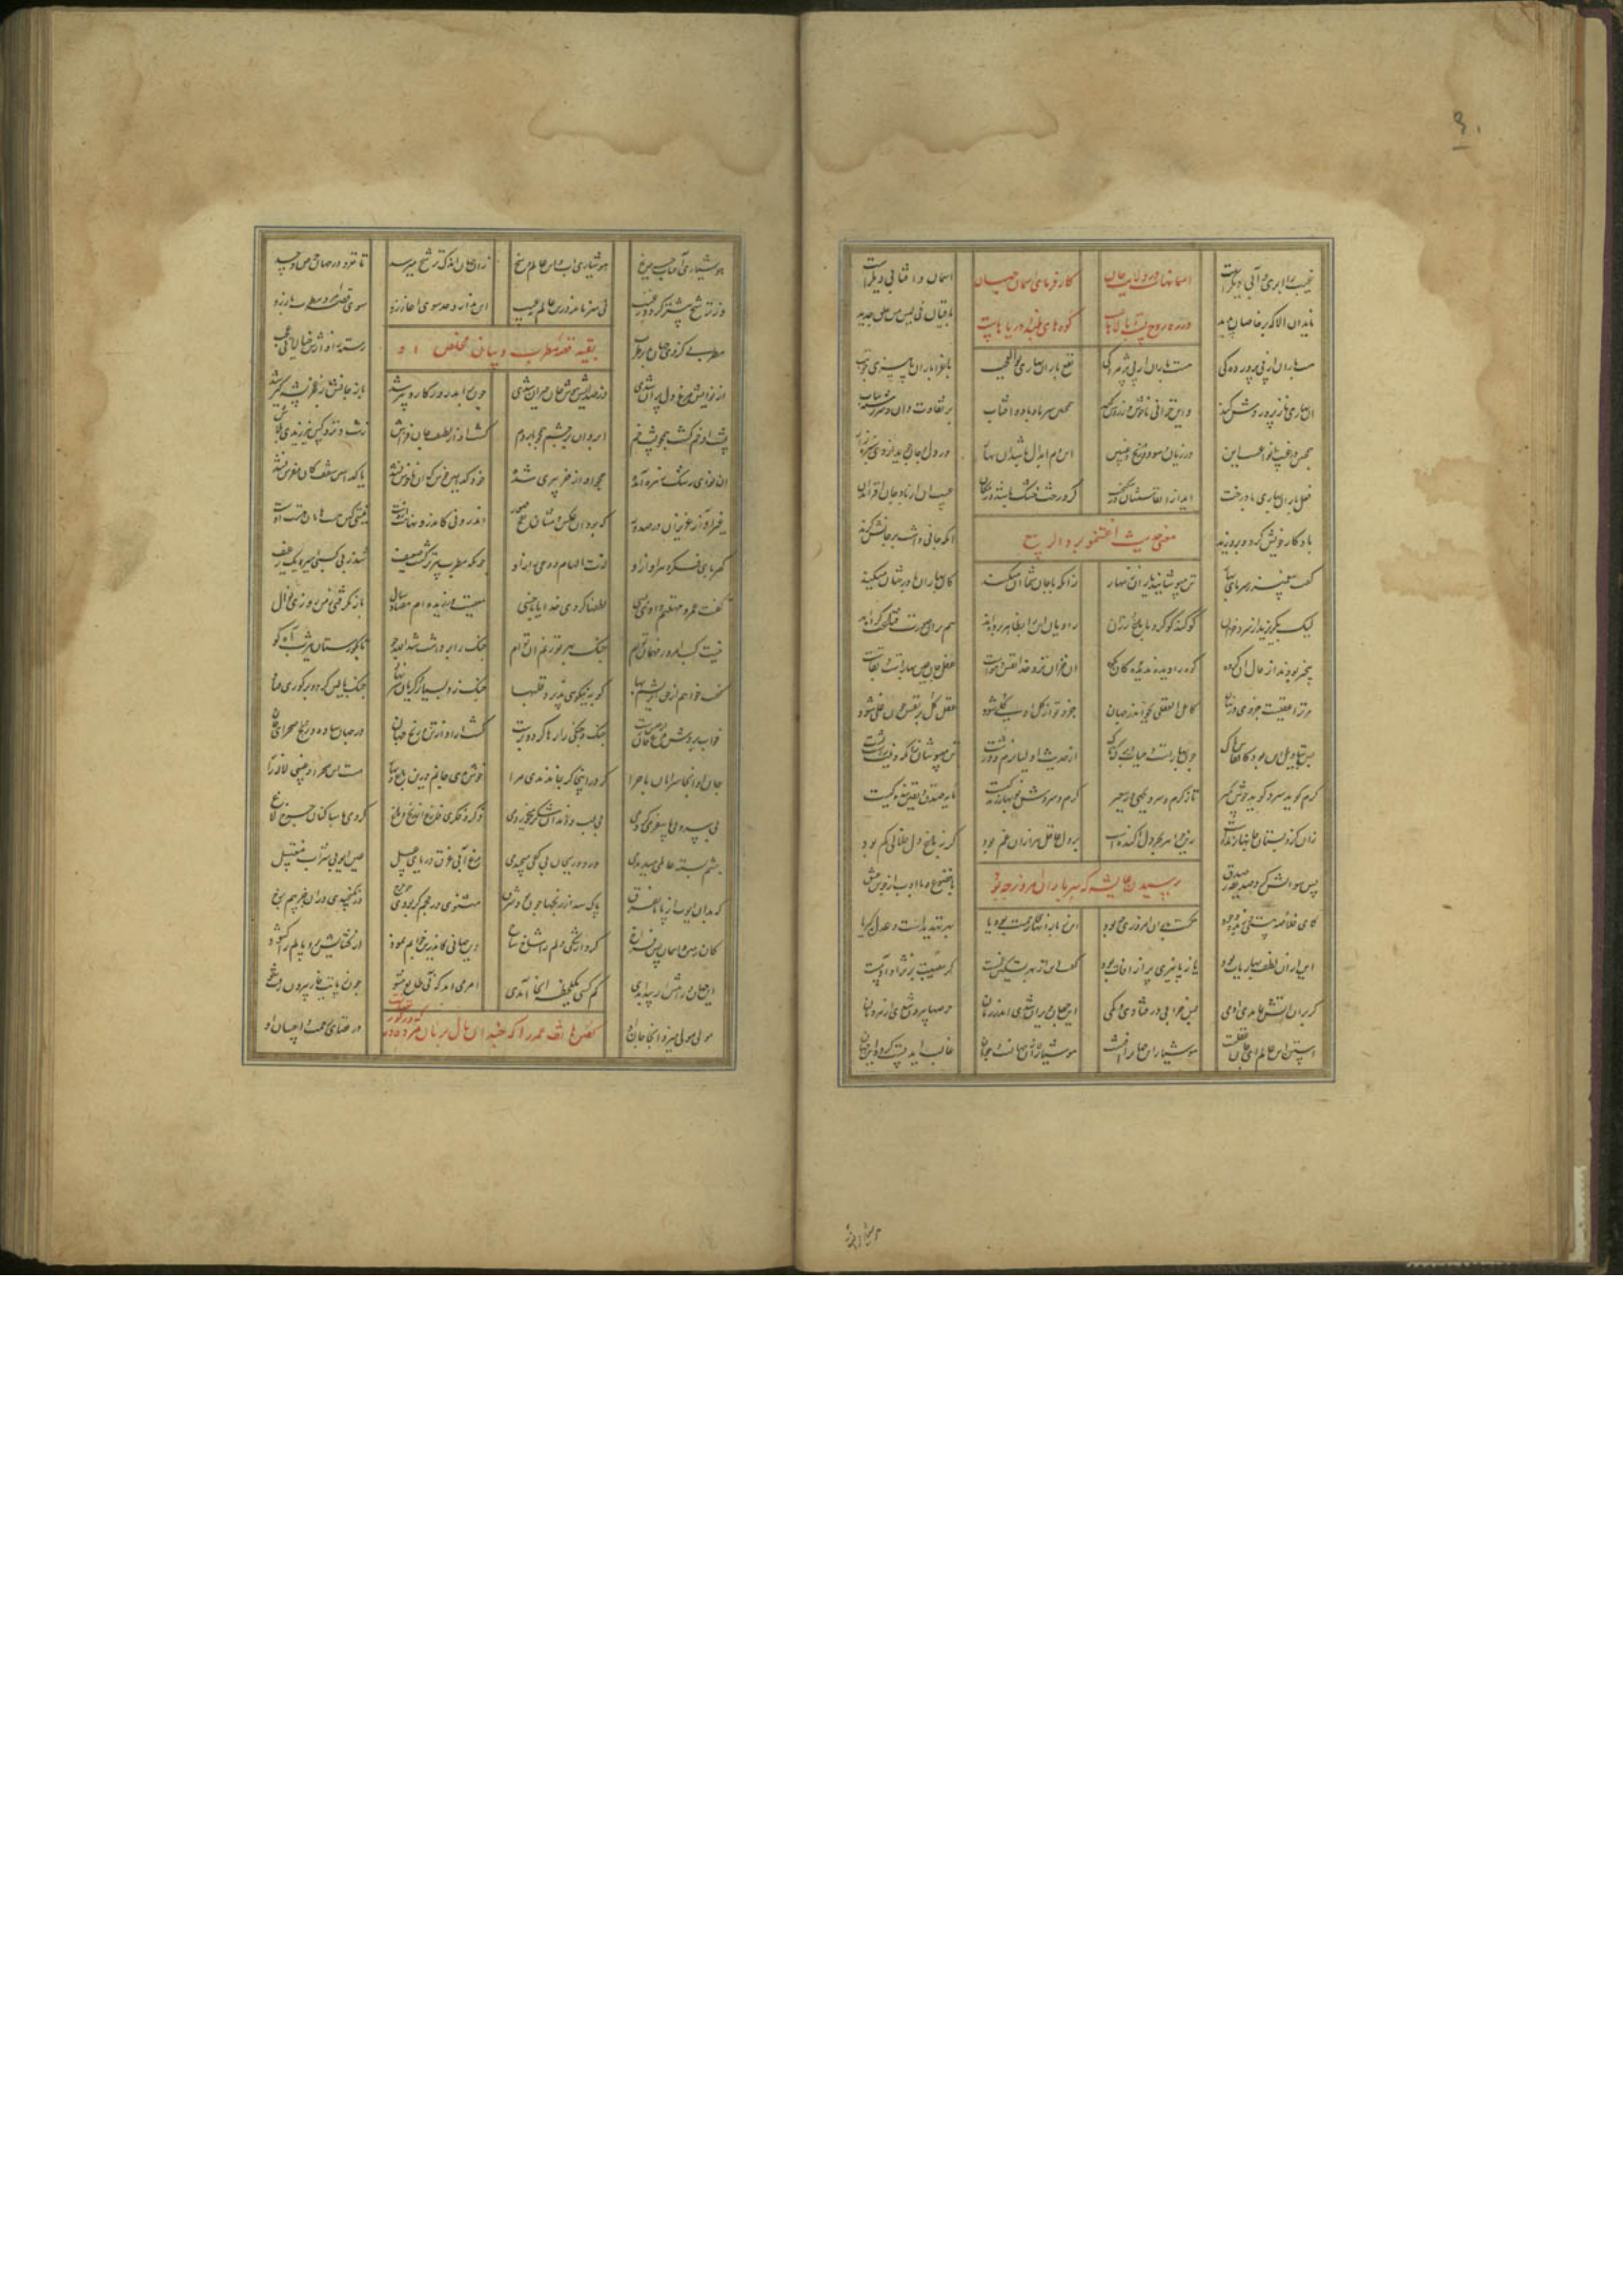 غیب را ابری و آبی دیگرست آسمانهاست در ولایت جان کارفرمای آسمان جهان آسمان و آفتابی دیگرست
ناید آن الا که بر خاصان پدید در ره روح پست و بالاهاست کوه های بلند و دریاهاست باقیان فی لبس من خلق جدید
هست باران از پی پروردگی هست باران از پی پژمردگی نفع باران بهاری بوالعجب باغ را باران پاییزی چو تب
آن بهاری نازپروردش کند وین خزانی ناخوش و زردش کند همچنین سرما و باد و آفتاب بر تفاوت دان و سررشته بیاب
همچنین در غیب انواعست این در زیان و سود و ربح و غبین این دم ابدال باشد زان بهار در دل و جان روید از وی سبزه زار
فعل باران بهاری با درخت آید از انفاسشان در نیکبخت گر درخت خشک باشد در مکان عیب آن از باد جان افزا مدان
باد کار خویش کرد و بر وزید آنکه جانی داشت بر جانش گزید
معنی حدیث اغتنموا برد الربیع
گفت پیغمبر ز سرمای بهار تن مپوشانید یاران زینهار زانکه با جان شما آن میکند کان بهاران با درختان میکند
لیک بگریزید از سرد خزان کو کند کو کرد با باغ و رزان راویان این را بظاهر برده اند هم بر آن صورت قناعت کرده اند
بیخبر بودند از حال آن گروه کوه را دیده ندیده کان بکوه آن خزان نزد خدا نفس و هواست عقل و جان عین بهارست و بقاست
مر ترا عقلیست جزوی در نهان کامل العقلی بجو اندر جهان جزو تو از کل او کلی شود عقل کل بر نفس چون غلی شود
پس بتاویل این بود کانفاس پاک چون بهارست و حیات برگ و تاک از حدیث اولیا نرم و درشت تن مپوشان زانکه دینت راست پشت
گرم گوید سرد گوید خوش بگیر تا ز گرم و سرد بجهی وز سعیر گرم و سردش نوبهار زندگیست مایه صدق و یقین و بندگیست
زان کزو بستان جانها زنده است زین جواهر بحر دل آکنده است بر دل عاقل هزاران غم بود گر ز باغ دل خلالی کم بود
پس سوالش کرد صدیقه ز صدق با خشوع و با ادب از جوش عشق
پرسیدن عایشه که سر باران امروز چه بود
کای خلاصه هستی و زبده وجود حکمت باران امروزی چه بود این ز بارانهای رحمت بود یا بهر تهدیدست و عدل کبریا
این از آن لطف بهاریات بود یا ز پاییزی پر از آفات بود گفت این از بهر تسکین غمست کز مصیبت بر نژاد آدمست
گر بر آن آتش بماندی آدمی بس خرابی در فتادی و کمی این جهان ویران شدی اندر زمان حرصها بیرون شدی از مردمان
استن این عالم ای جان غفلتست هوشیاری این جهان را آفتست هوشیاری زان جهانست و چو آن غالب آید پست گردد این جهان
هوشیاری آفتاب و حرص یخ هوشیاری آب و این عالم وسخ زان جهان اندک ترشح میرسد تا نغرد در جهان حرص و حسد
ور ترشح بیشتر گردد ز غیب نی هنر ماند درین عالم نه عیب این ندارد حد سوی آغاز رو سوی قصه مرد مطرب باز رو
بقیه قصه مطرب و بیان مخلص او
مطربی کز وی جهان شد پر طرب رسته ز آوازش خیالات عجب
از نوایش مرغ دل پران شدی وز صدایش هوش جان حیران شدی چون برآمد روزگار و پیر شد باز جانش از عجز پشه گیر شد
پشت او خم گشت همچو پشت خم ابروان بر چشم همچو پالدم گشت آواز لطیف جان فزاش زشت و نزد کس نیرزیدی بلاش
آن نوای رشک زهره آمده همچو آواز خر پیری شده خود کدامین خوش که آن ناخوش نشد یا کدامین سقف کان مفرش نشد
غیر آواز عزیزان در صدور که بود از عکس دمشان نفخ صور اندرونی کاندرونها مست ازوست نیستی کین هستهامان هست ازوست
کهربای فکر و هر آواز او لذت الهام و وحی و راز او چونکه مطرب پیرتر گشت و ضعیف شد ز بی کسبی رهین یک رغیف
گفت عمر و مهلتم دادی بسی لطفها کردی خدایا با خسی معصیت ورزیده ام هفتاد سال باز نگرفتی ز من روزی نوال
نیست کسب امروز مهمان توام چنگ بهر تو زنم آن توام چنگ را برداشت شد الله جو تا بگورستان یثرب آه گو
گفت خواهم از حق ابریشم بها کو به نیکویی پذیرد قلبها چنگ زد بسیار و گریان سر نهاد چنگ بالین کرد و بر گوری فتاد
خواب بردش مرغ جانش از حبس رست چنگ و چنگی را رها کرد و بجست گشت آزاد از تن و رنج جهان در جهان ساده و صحرای جان
جان او آنجا سرایان ماجرا کاندر اینجا گر بماندندی مرا خوش بدی جانم درین باغ و بهار مست این صحرا و غیبی لاله زار
بی پر و بی پا سفر میکردمی بی لب و دندان شکر میخوردمی ذکر و فکری فارغ از رنج دماغ کردمی با ساکنان چرخ لاغ
چشم بسته عالمی میدیدمی ورد و ریحان بی کفی میچیدمی مرغ آبی غرق دریای عسل عین ایوبی شراب و مغتسل
که بدان ایوب از پا تا بفرق پاک شد از رنجها چون نور شرق مثنوی در حجم گر بودی چو چرخ در نگنجیدی درو زین نیم برخ
کان زمین و آسمان بس فراخ کرد از تنگی دلم را شاخ شاخ وین جهانی کاندرین خوابم نمود از گشایش پر و بالم را گشود
این جهان و راهش ار پیدا بدی کم کسی یک لحظه اینجا آمدی امر می آمد که نی طامع مشو چون ز پایت خار بیرون شد برو
مول مولی میزد آنجا جان او در فضای رحمت و احسان او